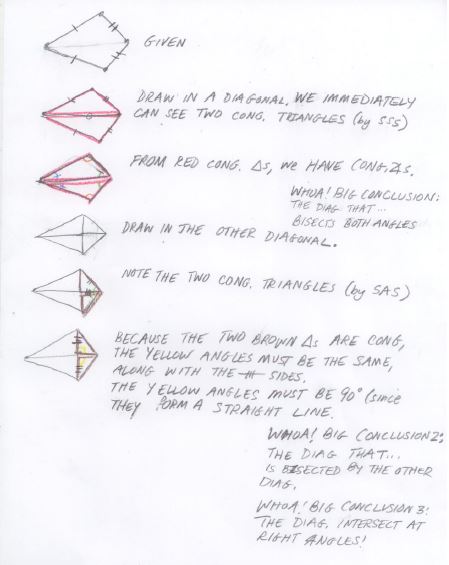 GIVEN
DRAW IN A DIAGONAL. WE IMMEDIATELY
CAN SEE TWO CONG. TRIANGLES (by SSS)
FROM RED CONG. Δs, WE HAVE CONG. ∡s.
WHOA! BIG CONCLUSION:
THE DIAG THAT...
BISECTS BOTH ANGLES
DRAW IN THE OTHER DIAGONAL.
NOTE THE TWO CONG. TRIANGLES (by SAS)
BECAUSE THE TWO BROWN Δs ARE CONG,
THE YELLOW ANGLES MUST BE THE SAME,
ALONG WITH THE SIDES.
THE YELLOW ANGLES MUST BE 90° (since
THEY FORM A STRAIGHT LINE.
WHOA! BIG CONCLUSION 2:
THE DIAG THAT...
IS BISECTED BY THE OTHER
DIAG.
WHOA! BIG CONCLUSION 3:
THE DIAG. INTERSECT AT
RIGHT ANGLES!